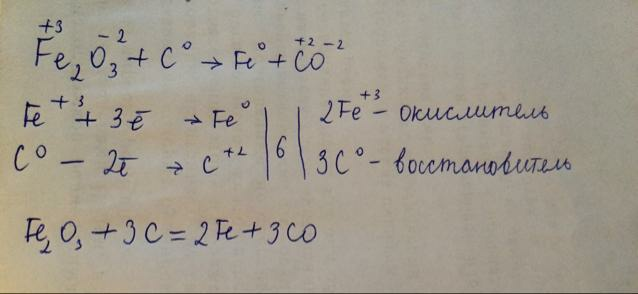 Fe₂⁺³O₃⁻² + C⁰ → Fe⁰ + C⁺²O⁻²
Fe⁺³ + 3ē → Fe⁰ | 6 | 2Fe⁺³ – окислитель
C⁰ – 2ē → C⁺² | 3C⁰ – восстановитель
Fe₂O₃ + 3C = 2Fe + 3CO